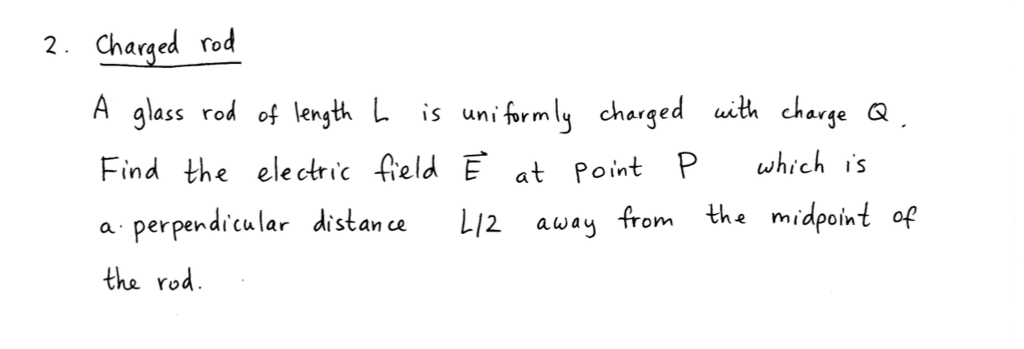 2. Charged rod
A glass rod of length L is uniformly charged with charge Q.
Find the electric field E⃗ at point P which is
a perpendicular distance L/2 away from the midpoint of
the rod.